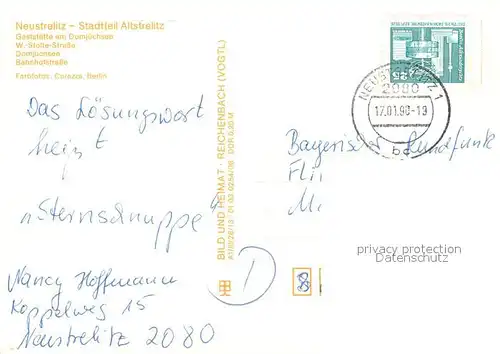 Neustrelitz - Stadtteil Altstrelitz
Gaststätte am Domjüchsee
W.-Stolte-Straße
Domjüchsee
Bahnhofstraße
Farbfotos: Corazza, Berlin
Das Lösungswort
heißt
"Sternschnuppe"
Nancy Hoffmann
Koppelweg 15
Neustrelitz 2080
BILD UND HEIMAT · REICHENBACH (VOGTL)
NEUSTRELITZ 1
2080
17.01.90-19
bd
25
Bayerischer Rundfunk
Fli
M
privacy protection
Datenschutz